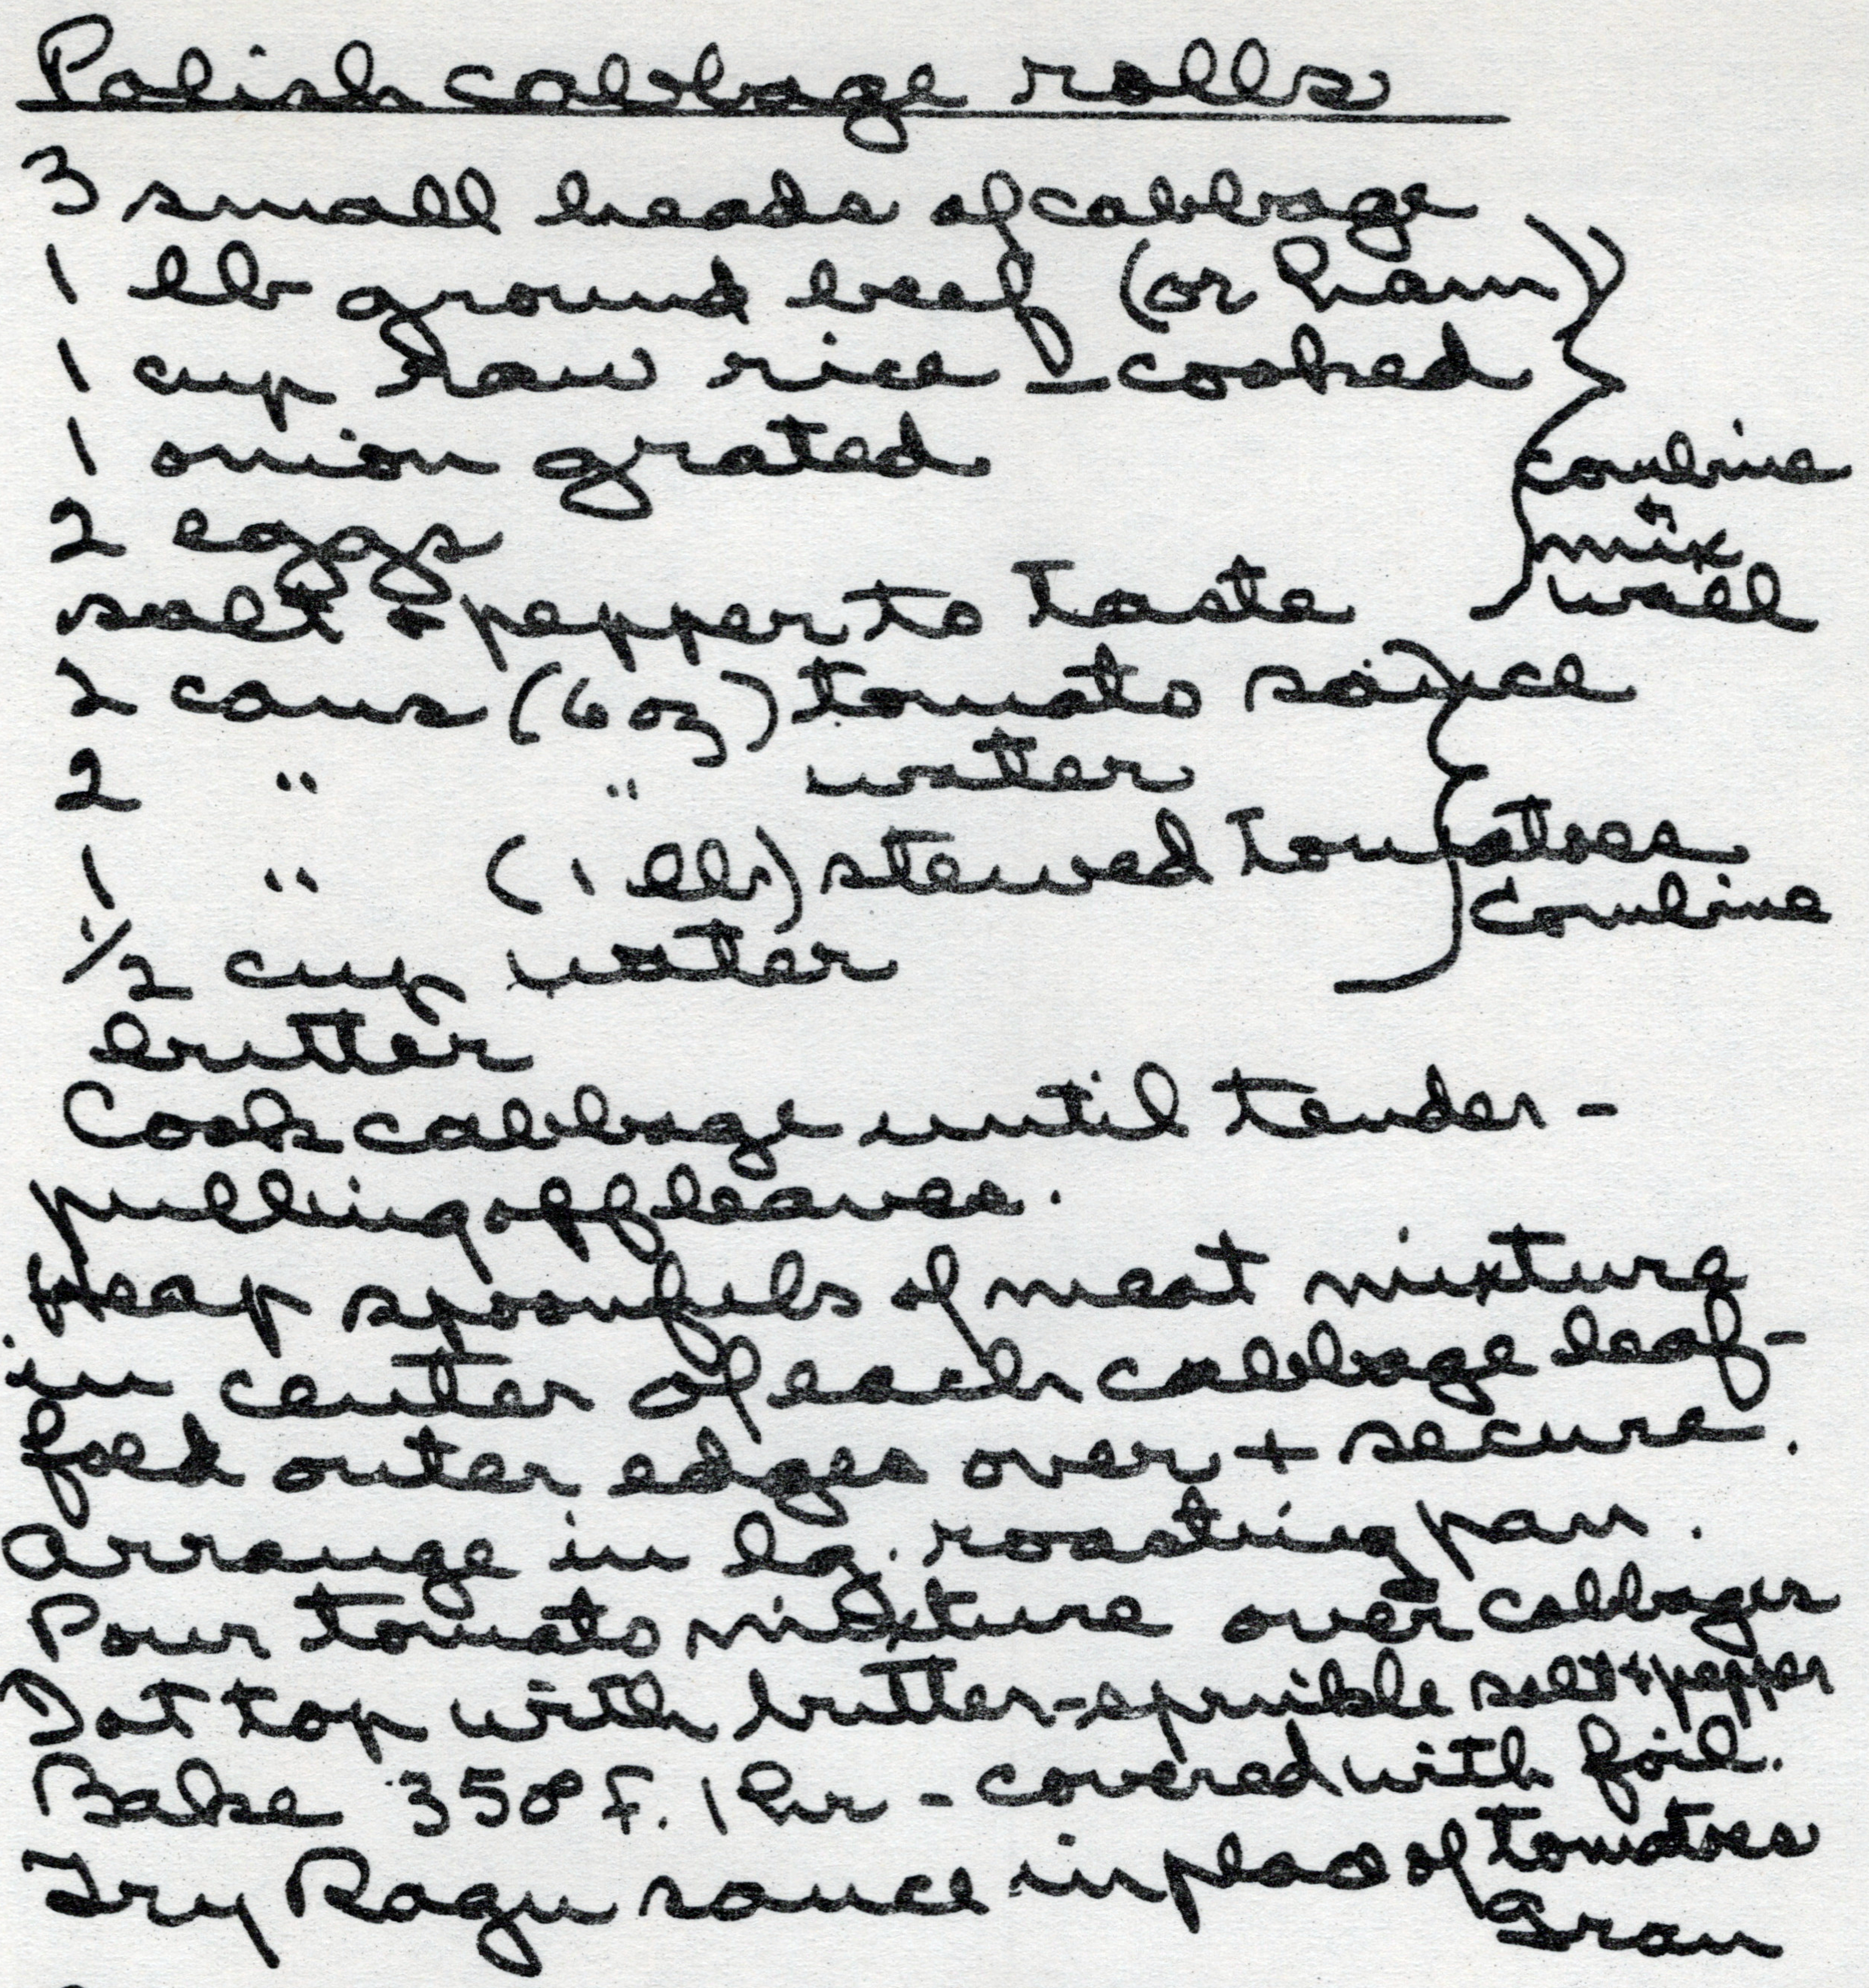 Polish cabbage rolls
3 small heads of cabbage
1 lb ground beef (or ham)
1 cup raw rice - cooked
1 onion grated
combine
2 eggs
+ mix
well
salt + pepper to taste
2 cans (6 oz) tomato sauce
2 " " water
1 " (1 lb) stewed tomatoes
Combine
1/2 cup water
butter
Cook cabbage until tender -
pulling off leaves.
Heap spoonfuls of meat mixture
in center of each cabbage leaf -
fold outer edges over + secure.
Arrange in lg. roasting pan.
Pour tomato mixture over cabbages
Dot top with butter - sprinkle salt + pepper
Bake 350° F. 1 hr - covered with foil.
Try Ragu sauce in place of tomatoes
Gran